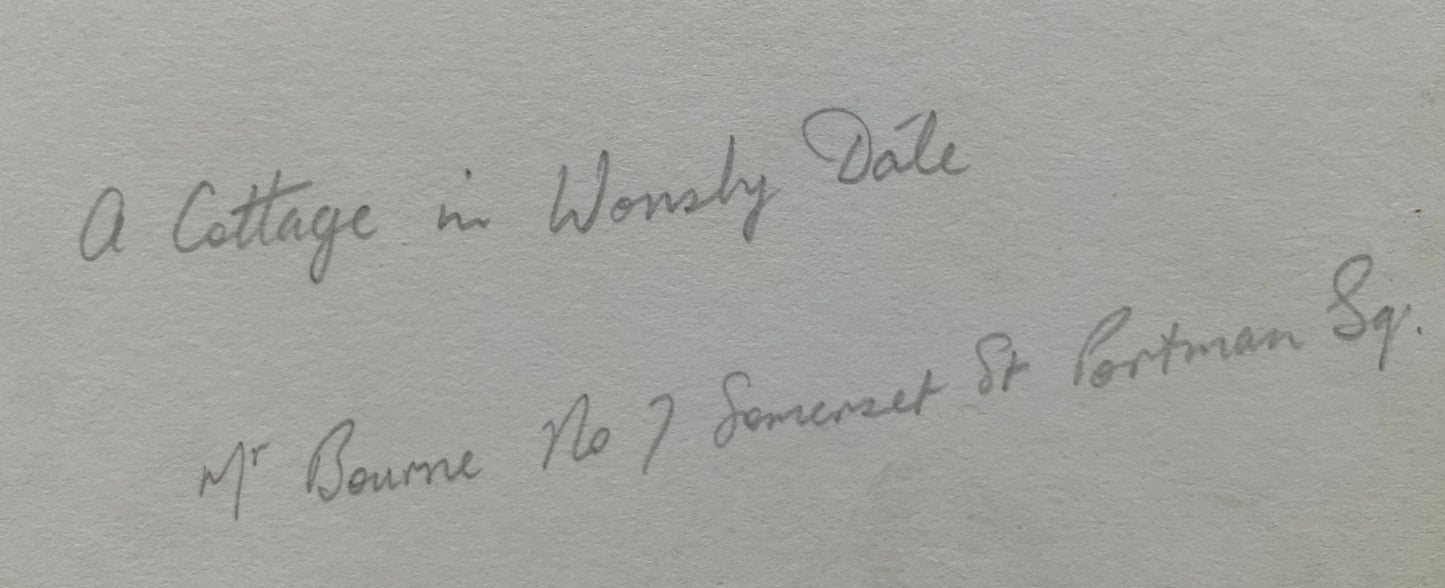 A Cottage in Wonsly Dale
Mr Bourne No 7 Somerset St Portman Sq.